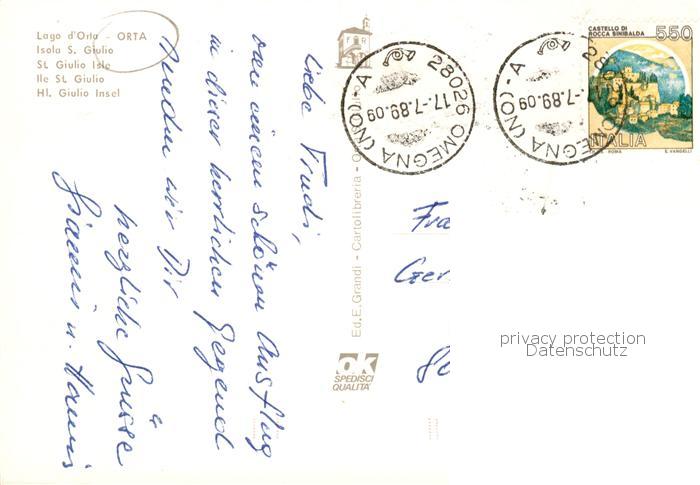 Lago d'Orta - ORTA
Isola S. Giulio
St. Giulio Isle
Ile St. Giulio
Hl. Giulio Insel
Liebe Trudi,
von einem schönen Ausflug
in dieser herrlichen Gegend
senden wir Dir
herzliche Grüsse
u. Hanni
Ed. E. Grandi - Cartolibreria - O
OK
SPEDISCI
QUALITA'
28026 OMEGNA (NO) - A
17.-7.-89.09
OMEGNA (NO) - A
-7.-89.09
CASTELLO DI
ROCCA SINIBALDA
550
ITALIA
ROMA
E. VANGELLI
Fra
privacy protection
Datenschutz